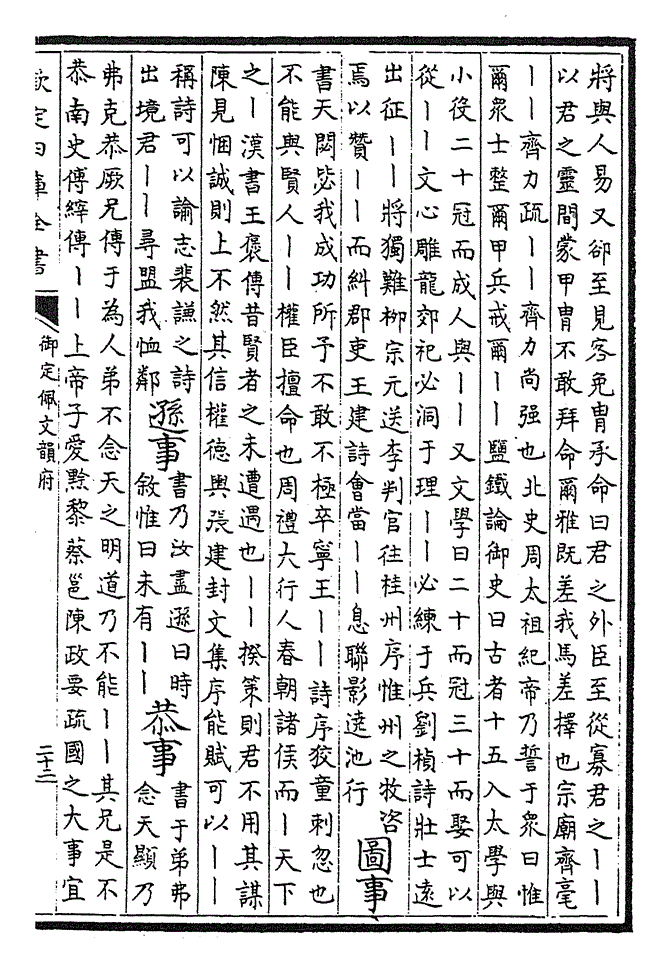 將與人易又卻至見客免胄承命曰君之外臣至從寡君之丨丨
以君之靈間蒙甲胄不敢拜命爾雅既差我馬差擇也宗廟齊毫
丨丨齊力疏丨丨齊力尚强也北史周太祖紀帝乃誓于衆曰惟
爾衆士整爾甲兵戒爾丨丨鹽鐵論御史曰古者十五入太學與
小役二十冠而成人與丨丨又文學曰二十而冠三十而娶可以
從丨丨文心雕龍郊祀必洞于理丨丨必練于兵劉楨詩壯士遠
出征丨丨將獨難柳宗元送李判官往桂州序惟州之牧咨
焉以贊丨丨而糾郡吏王建詩會當丨丨息聯影遶池行
圖事
書天閟毖我成功所予不敢不極卒寧王丨丨詩序狡童刺忽也
不能與賢人丨丨權臣擅命也周禮大行人春朝諸侯而丨天下
之丨漢書王褒傳昔賢者之未遭遇也丨丨揆策則君不用其謀
陳見悃誠則上不然其信權德輿張建封文集序能賦可以丨丨
稱詩可以諭志裴謙之詩
出境君丨丨尋盟我恤鄰
遜事
書乃汝盡遜曰時
敘惟曰未有丨丨
恭事
書于弟弗
念天顯乃
弗克恭厥兄傳于為人弟不念天之明道乃不能丨丨其兄是不
恭南史傅縡傳丨丨上帝子愛黔黎蔡邕陳政要疏國之大事宜
欽定四庫全書
御定佩文韻府
二十三